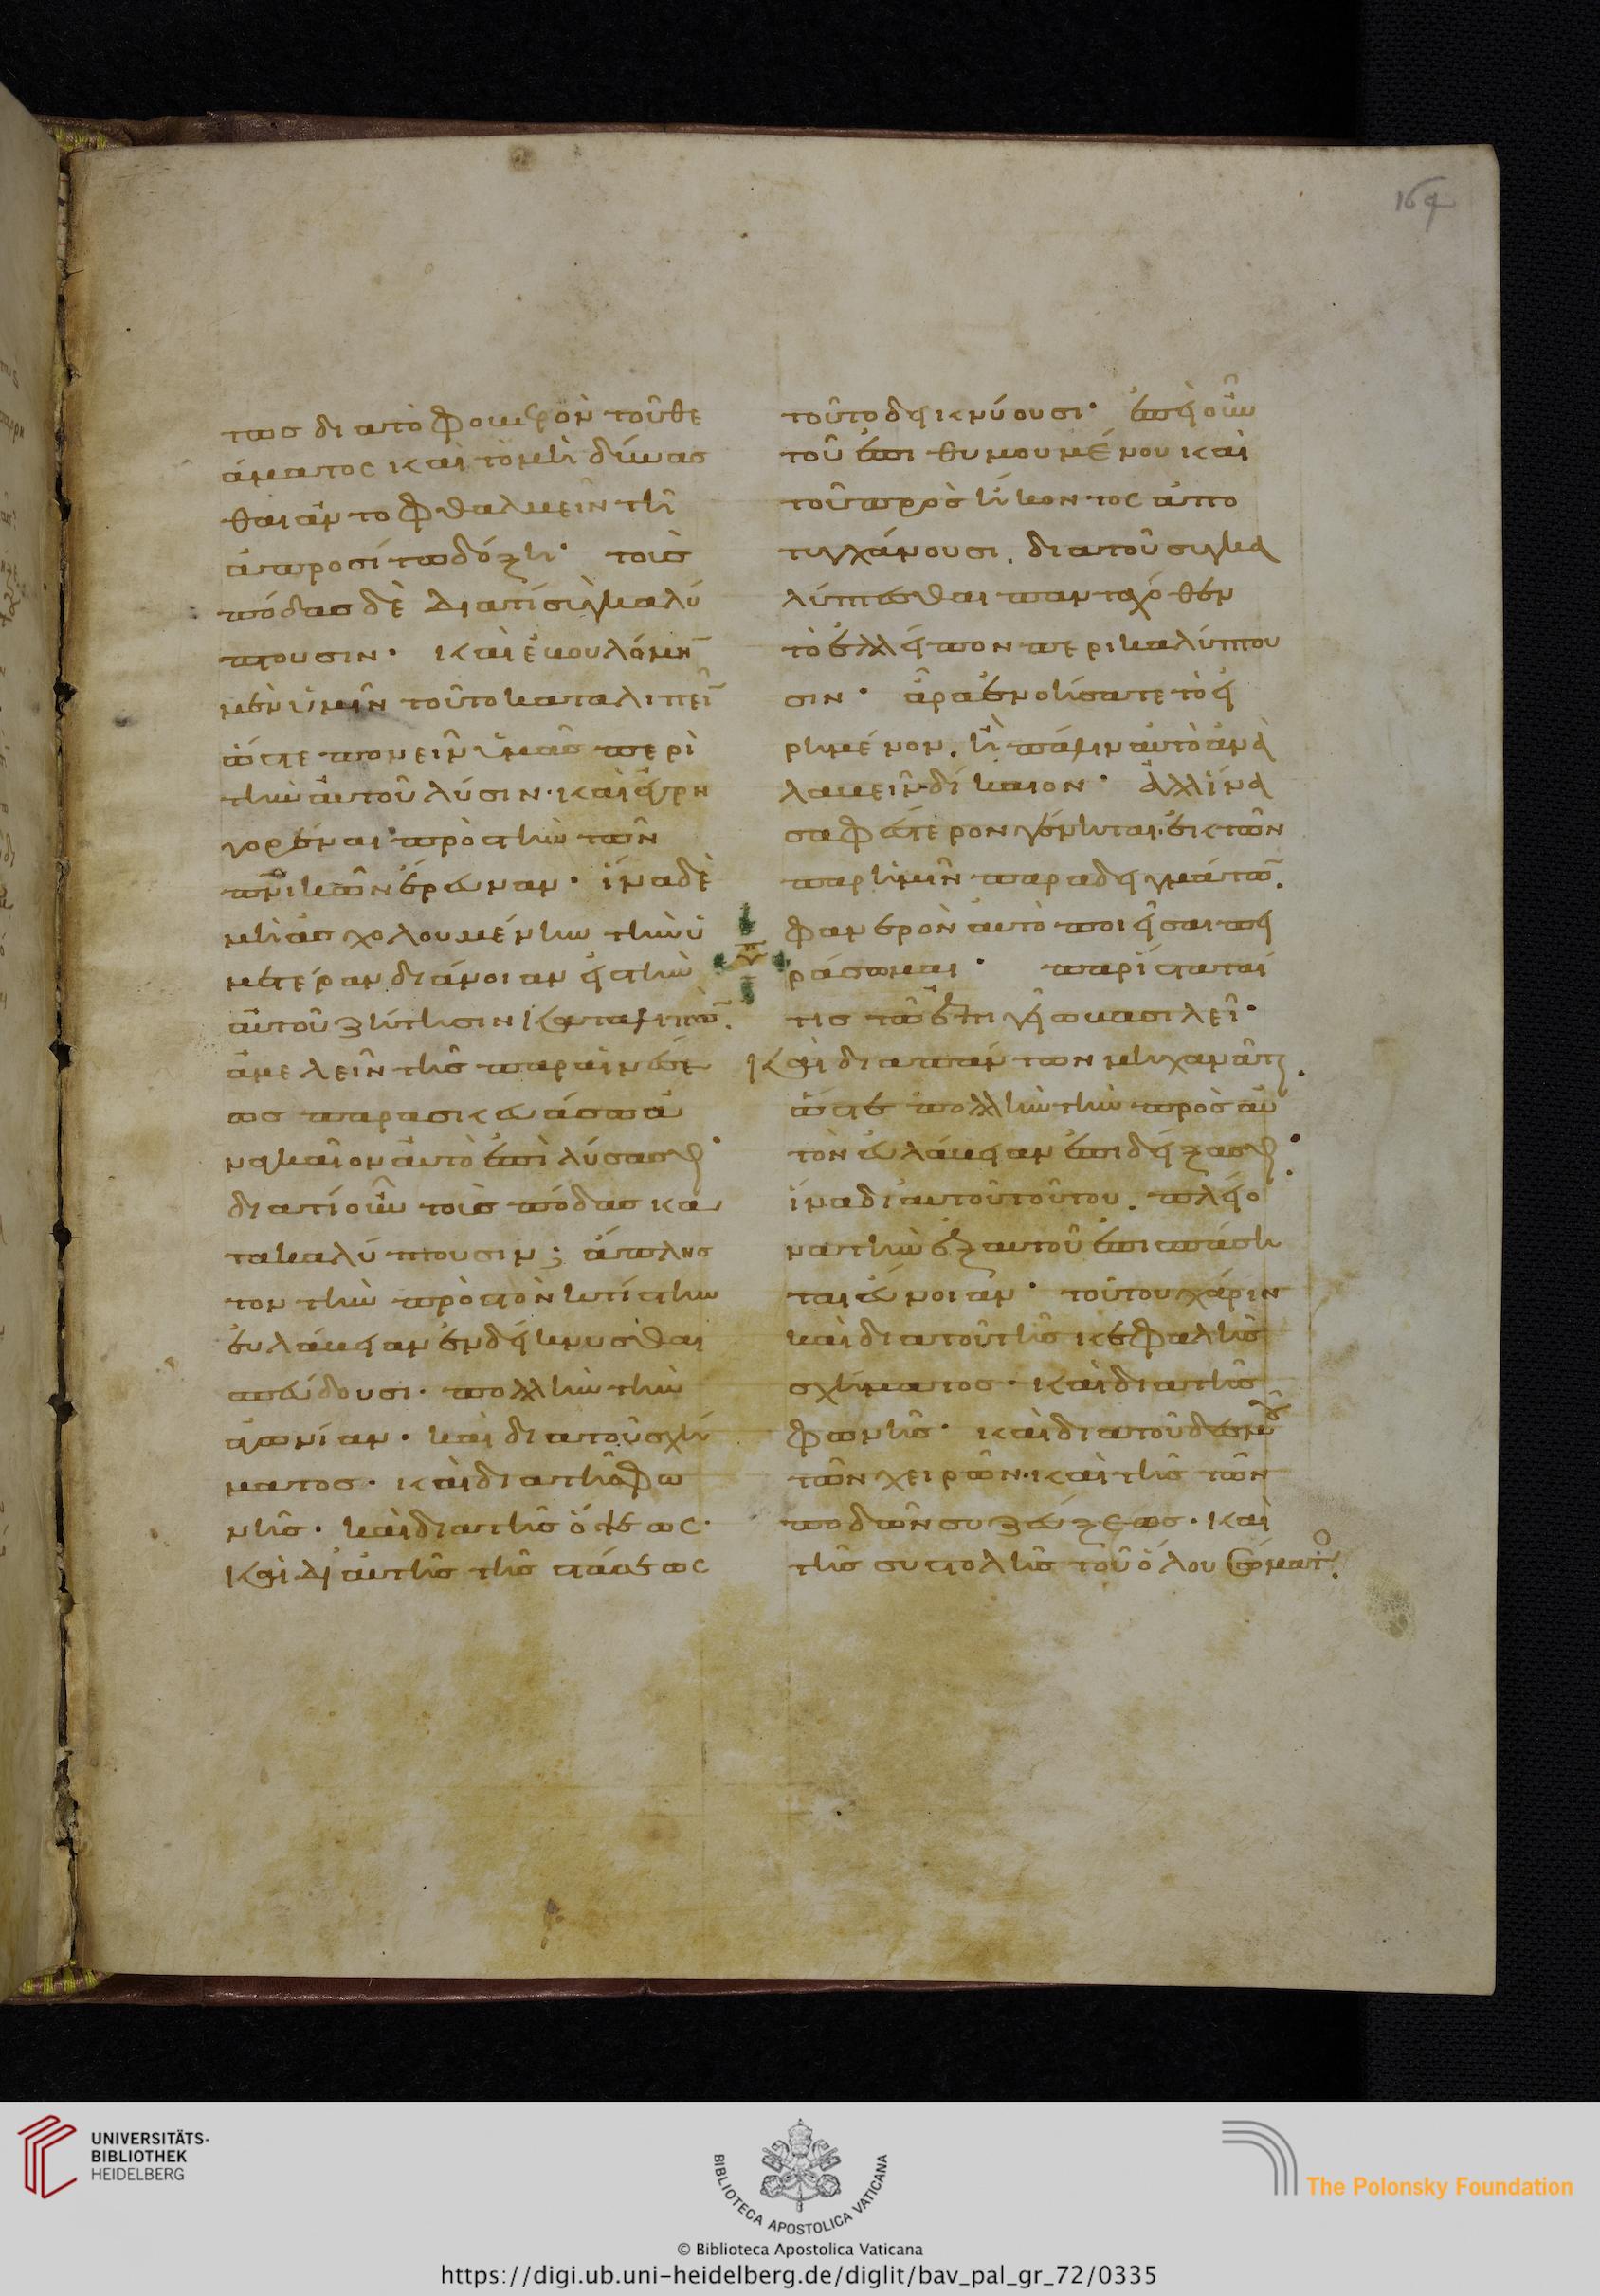 164
τως διατὸ φοβερὸν τοῦ θε
άματος καὶ τὸ μὴ δύνασ
θαι ἀντοφθαλμεῖν τῆ
ἀπροσίτω δόξη· τοὺς
πόδας δὲ διατί συγκαλύ
πτουσιν· καὶ ἐβουλόμην
μὲν ὑμῖν τοῦτο καταλιπεῖν
ὥστε πονεῖν ὑμᾶς περὶ
τὴν αὐτοῦ λύσιν· καὶ ἐγρη
γορέναι πρὸς τὴν τῶν
πνικῶν ἔρευναν· ἵνα δὲ
μὴ ἀσχολουμένην τὴν ὑ
μετέραν διάνοιαν εἰς τὴν
αὐτοῦ ζήτησιν καταλιπὼν
ἀμελεῖν τῆς παραινέσε
ως παρασκευάσω ἀ
ναγκαῖον αὐτὸ ἐπιλύσασθ
διατί οὖν τοὺς πόδας κα
τακαλύπτουσιν; ἄπλησ
τον τὴν πρὸς τὸν κτίστην
εὐλάβειαν ἐνδείκνυσθαι
σπεύδουσι· πολλὴν τὴν
ἀγωνίαν· καὶ διὰ τοῦ σχή
ματος· καὶ διὰ τῆς φω
νῆς· καὶ διὰ τῆς ὄψεως·
καὶ δι αὐτῆς τῆς στάσεως
τοῦτο δεικνύουσι· ἐπεὶ οὖν
τοῦ ἐπιθυμουμένου καὶ
τοῦ προσήκοντος ἀπο
τυγχάνουσι. διὰ τοῦ συγκα
λύπτεσθαι πανταχόθεν
τὸ ἐλλεῖπον περικαλύπτου
σιν· ἆρα ἐνοήσατε τὸ εἰ
ρημένον. ἢ πάλιν αὐτὸ ἀνα
λαβεῖν δίκαιον· ἀλλ ἵνα
σαφέστερον γένηται· ἐκ τῶν
παρ ἡμῖν παραδειγμάτων.
φανερὸν αὐτὸ ποιῆσαι πει
ράσομαι· παρίσταταί
τις τῶ ἐπὶ γῆς βασιλεῖ·
καὶ διὰ πάντων μηχανᾶται
ὥστε πολλὴν τὴν πρὸς αὐ
τὸν εὐλάβειαν ἐπιδείξασθ·
ἵνα δι αὐτοῦ τούτου. πλείο
να τὴν ἐξ αὐτοῦ ἐπισπάση
ται εὔνοιαν· τούτου χάριν
καὶ διὰ τοῦ τῆς κεφαλῆς
σχήματος· καὶ διὰ τῆς
φωνῆς· καὶ διὰ τοῦ δεσμοῦ
τῶν χειρῶν· καὶ τῆς τῶν
ποδῶν συζεύξεως· καὶ
τῆς συστολῆς τοῦ ὅλου σώματος.
UNIVERSITÄTS-
BIBLIOTHEK
HEIDELBERG
BIBLIOTECA APOSTOLICA VATICANA
The Polonsky Foundation
© Biblioteca Apostolica Vaticana
https://digi.ub.uni-heidelberg.de/diglit/bav_pal_gr_72/0335